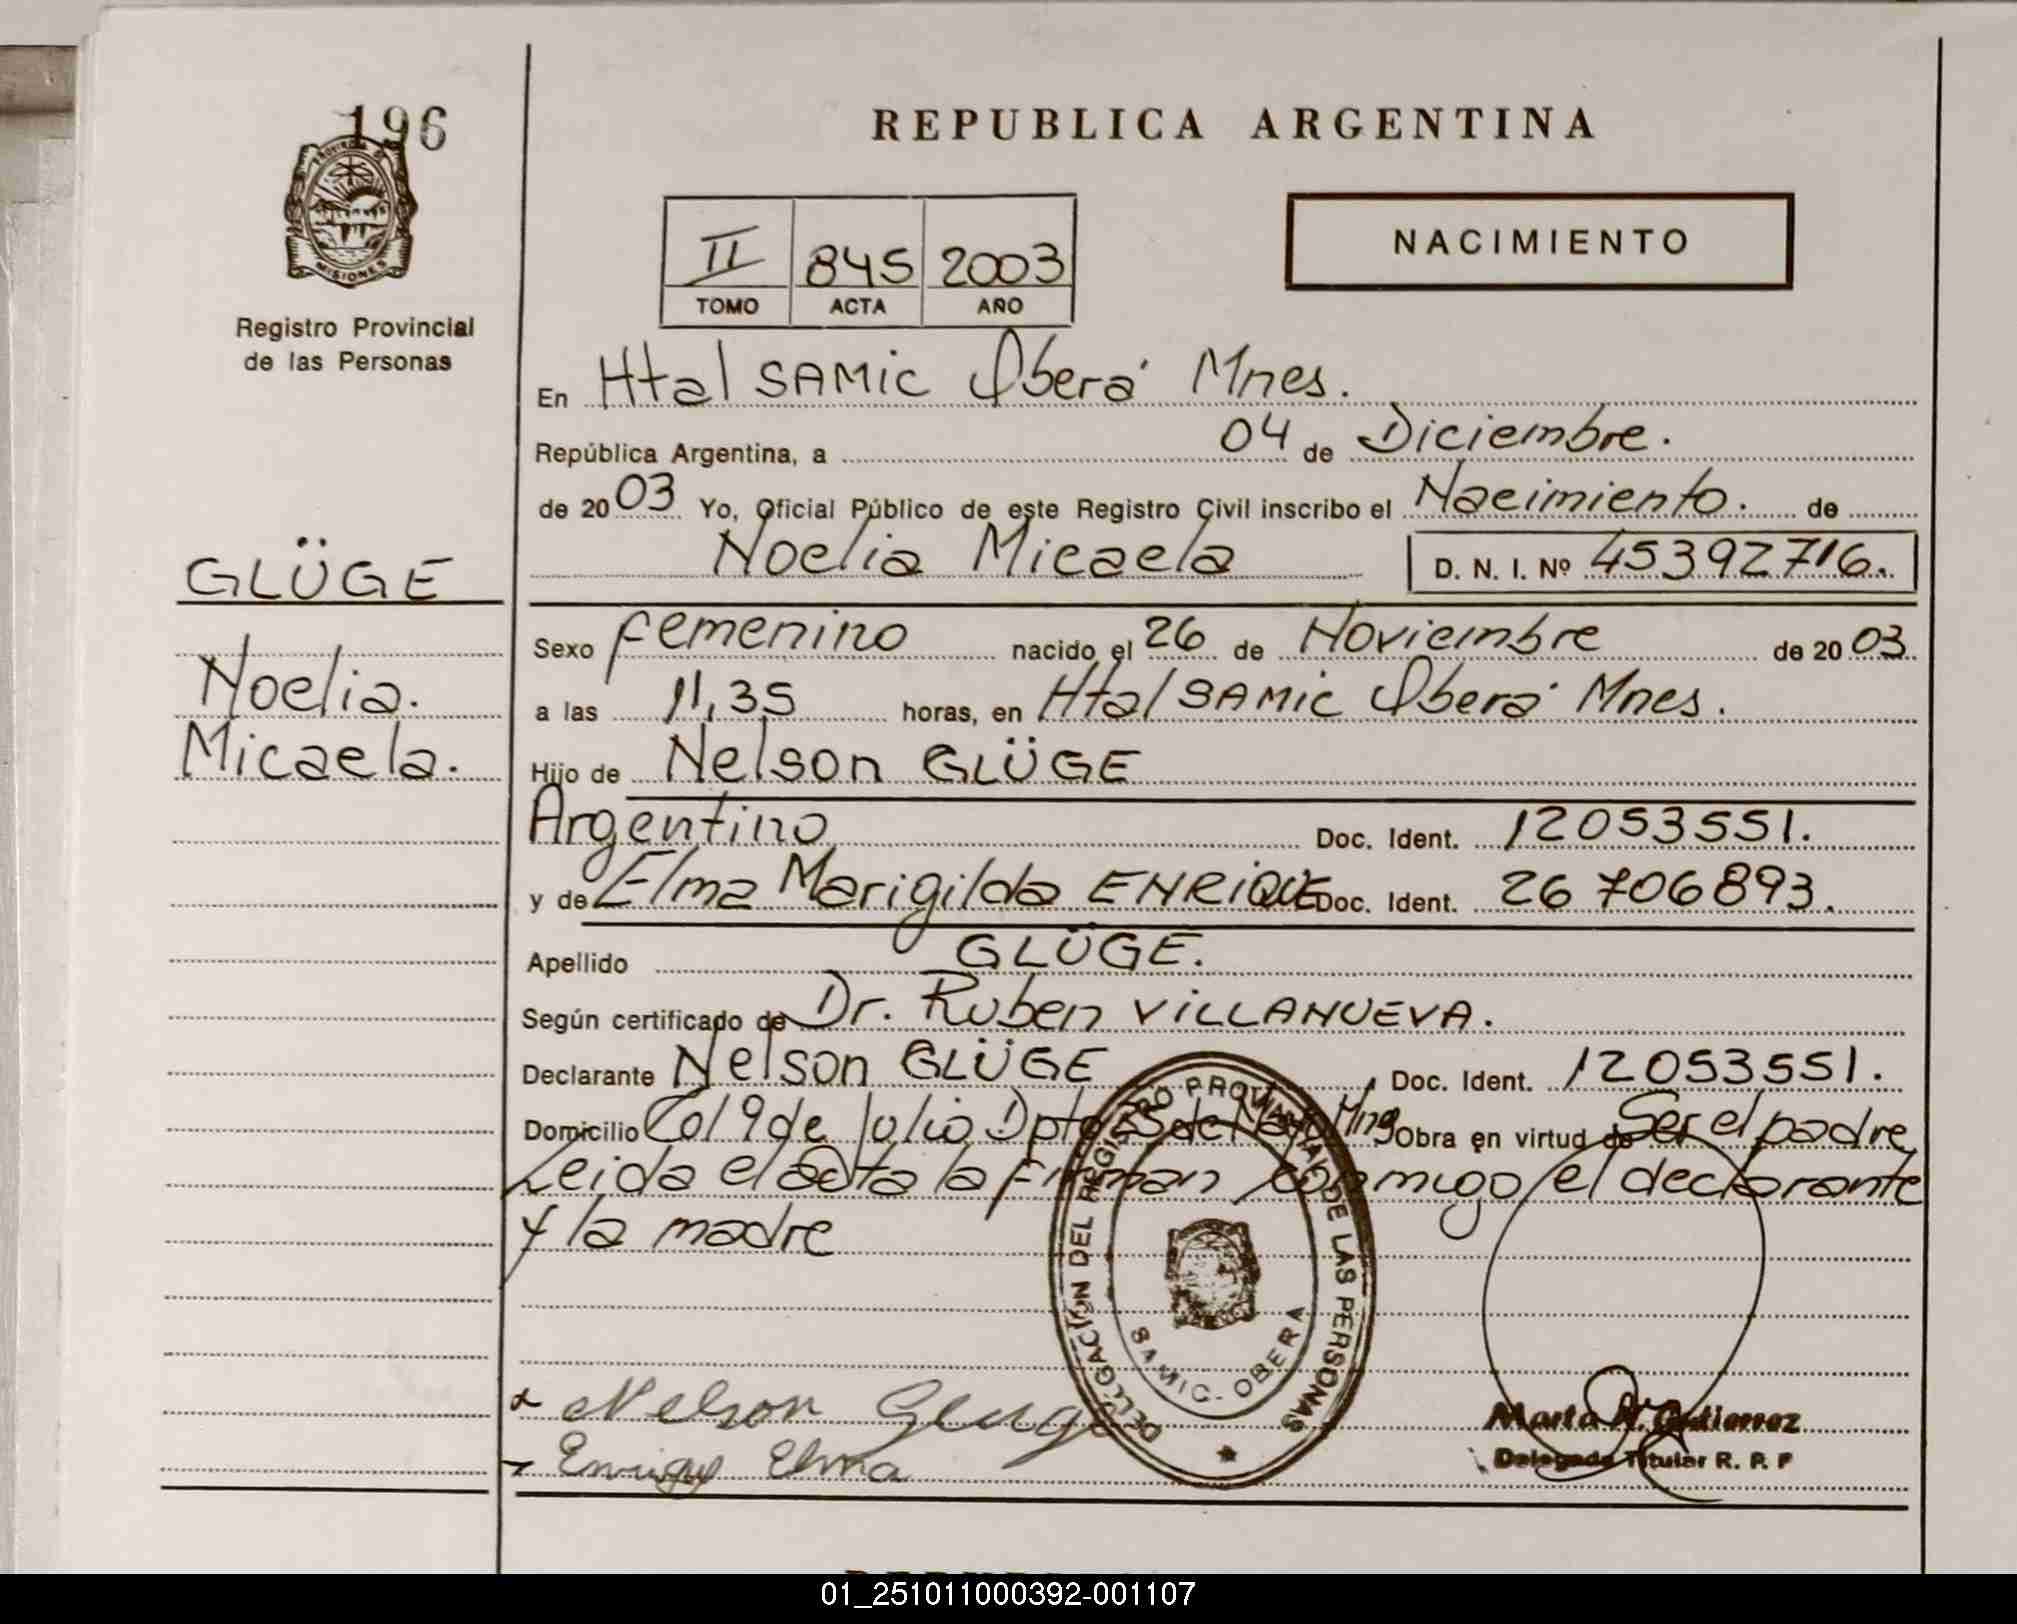 196
PROVINCIA DE
MISIONES
Registro Provincial
de las Personas
GLÜGE
Noelia.
Micaela.
REPUBLICA ARGENTINA
II 845 2003
TOMO ACTA AÑO
NACIMIENTO
En Htal SAMiC Oberá Mnes.
República Argentina, a 04 de Diciembre.
de 2003 Yo, Oficial Público de este Registro Civil inscribo el Nacimiento. de
Noelia Micaela D. N. I. Nº 45392716.
Sexo femenino nacido el 26 de Noviembre de 2003
a las 11,35 horas, en Htal SAMiC Oberá Mnes.
Hijo de Nelson GLÜGE
Argentino Doc. Ident. 12053551.
y de Elma Marigilda ENRiQUE Doc. Ident. 26 706893.
Apellido GLÜGE.
Según certificado de Dr. Ruben ViLLANUEVA.
Declarante Nelson GLÜGE Doc. Ident. 12053551.
Domicilio Col 9 de Julio Dpto 25 de Mayo Mnes Obra en virtud de Ser el padre
Leida el acta la firman conmigo el declarante
y la madre
DELEGACIÓN DEL REGISTRO PROVINCIAL DE LAS PERSONAS
SAMIC - OBERA
Nelson Gluge
Enrique Elma
Marta N. Gutierrez
Delegada Titular R. P. P
01_251011000392-001107